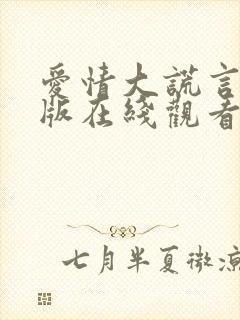 愛情大謊言
版在綫觀看
七月半夏微涼